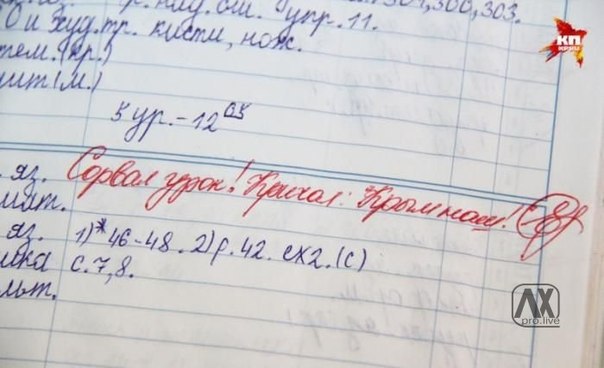 р. над. ош. упр. 11. 301, 300, 303.
О и худ. тр. кисти, нож.
КП
KP.RU
тем. (пр.)
шт (м.)
5 ур. - 12 05
яз. Сорвал урок! Кричал: Крым наш!
мат.
яз. 1)* 46 - 48. 2) р. 42. ex 2. (с)
ика с. 7, 8.
льт.
ЛХ
pro.live